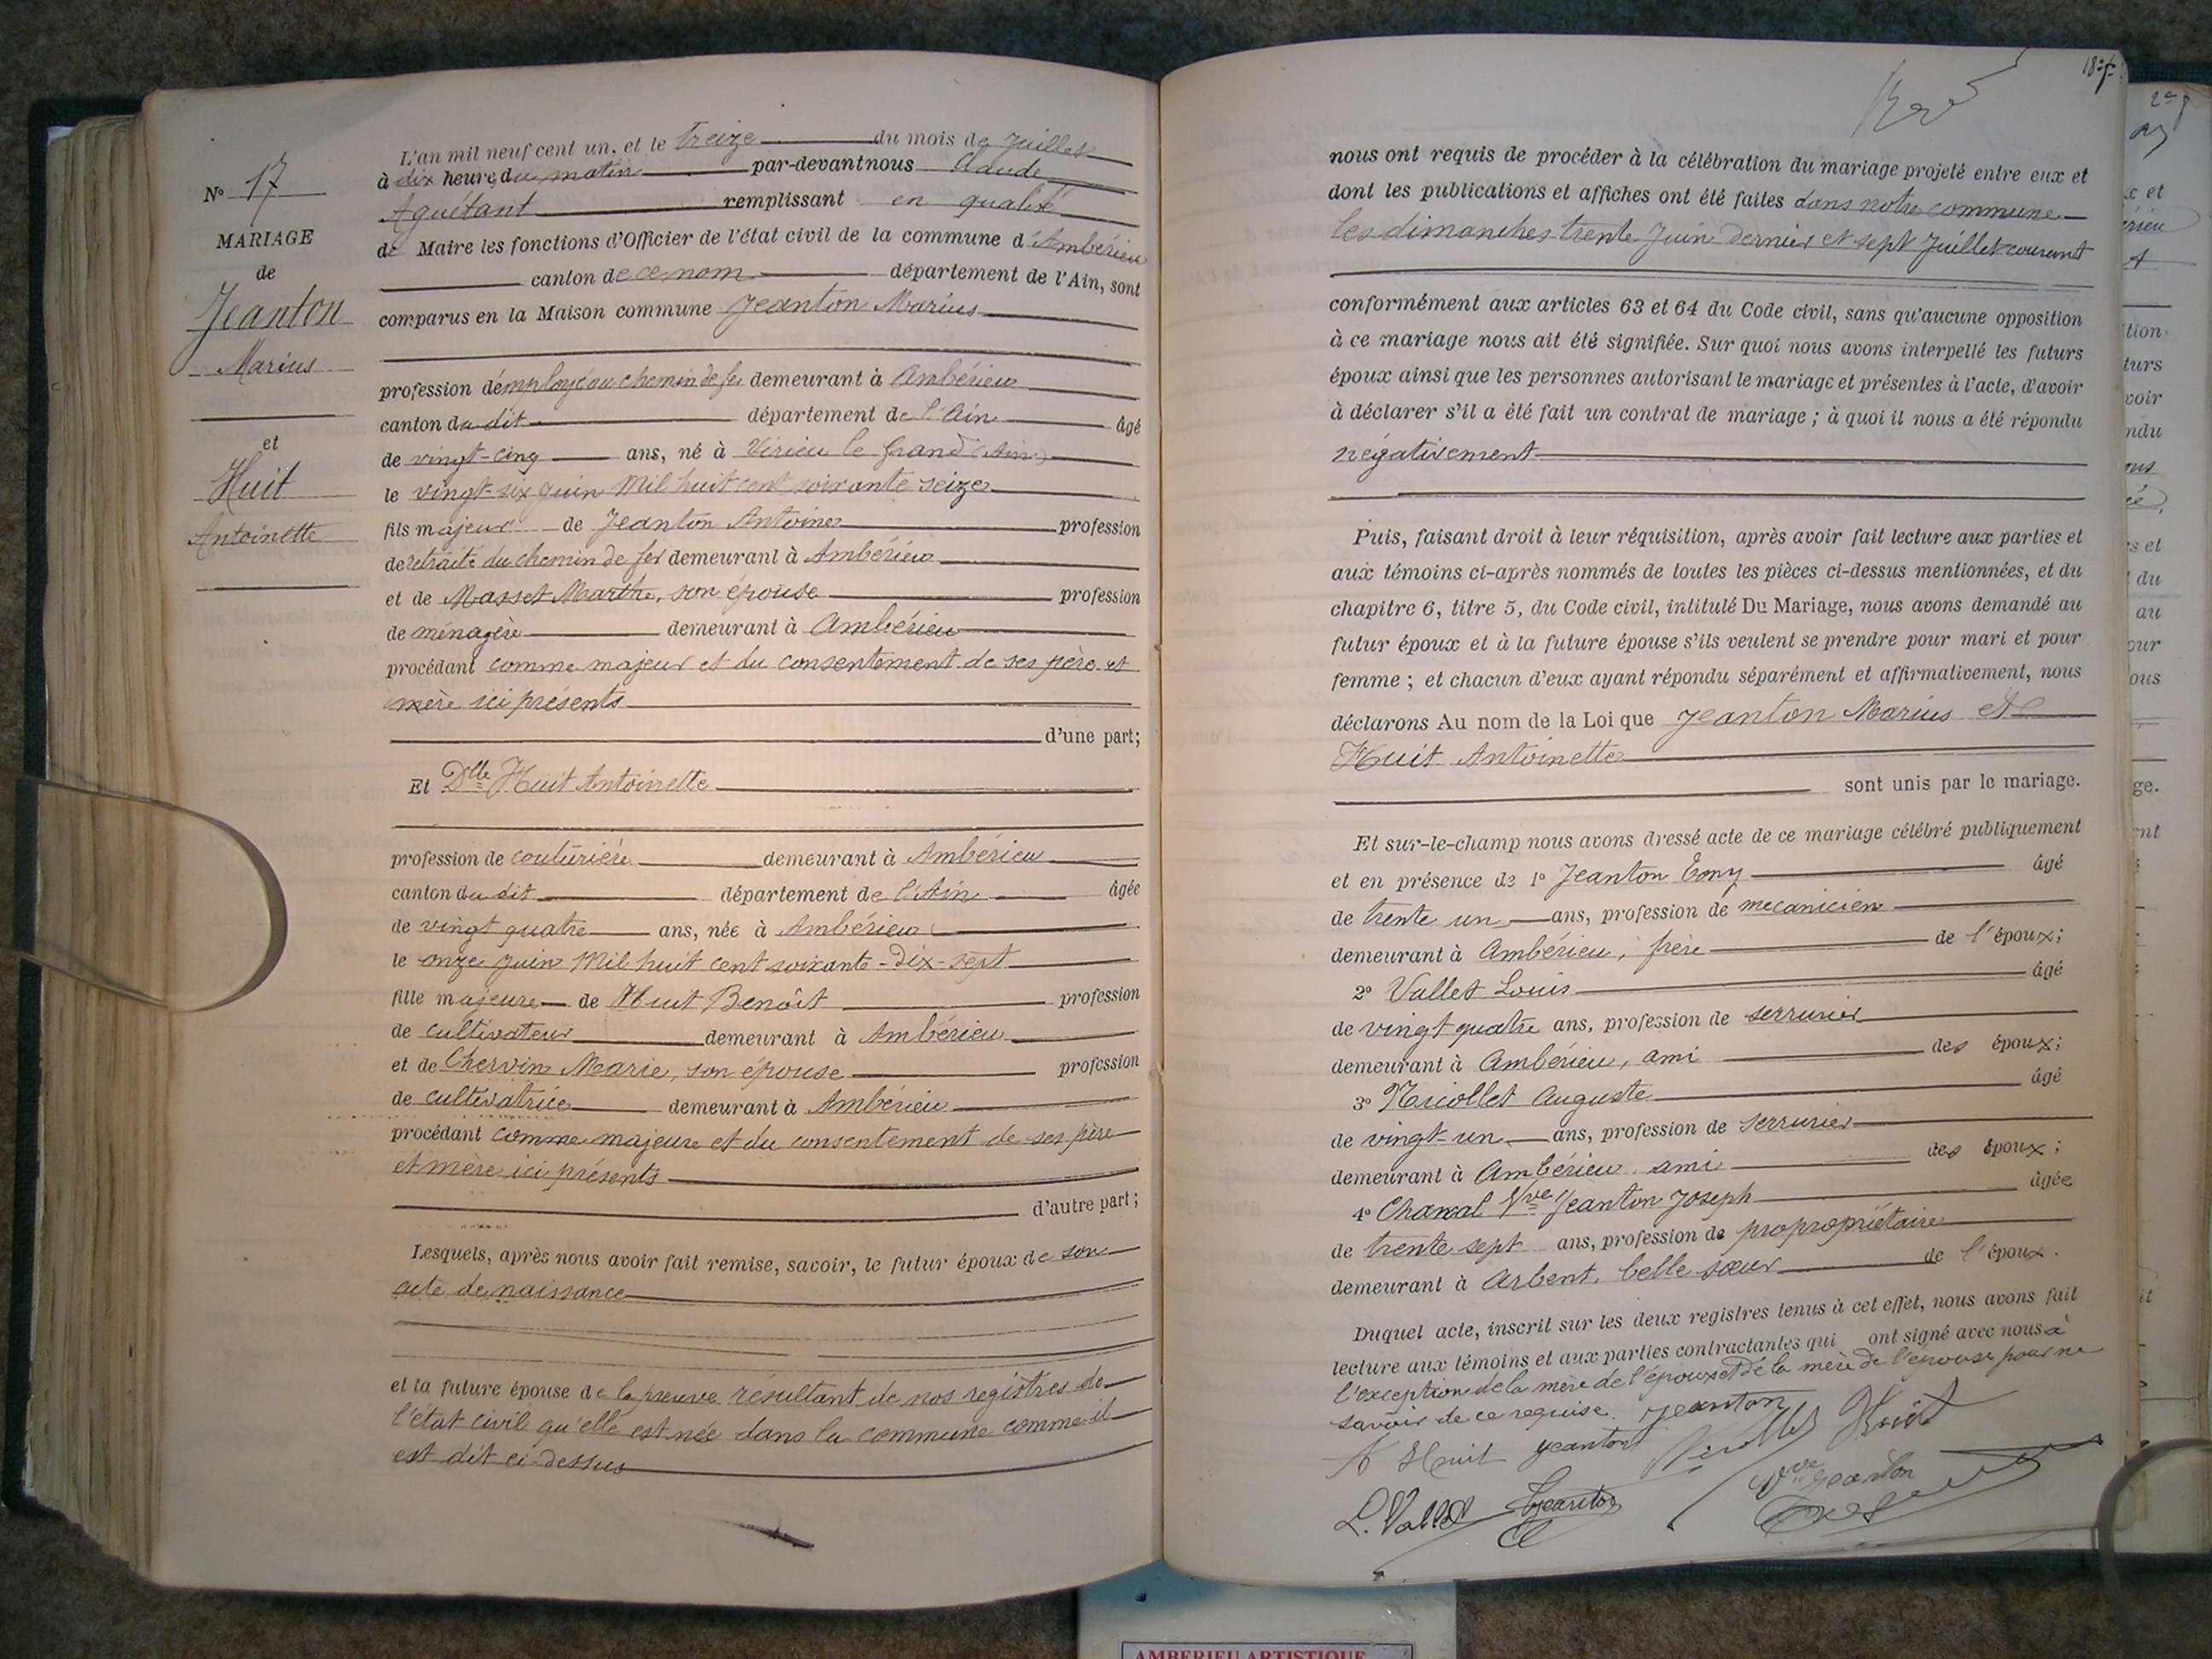 N° 17
MARIAGE
de
Jeanton
Marius
et
Huit
Antoinette
L'an mil neuf cent un, et le treize du mois de juillet
à dix heures du matin par-devant nous Claude
Aguétant remplissant en qualité
de Maire les fonctions d'Officier de l'état civil de la commune d'Ambérieu
canton de ce nom département de l'Ain, sont
comparus en la Maison commune Jeanton Marius
profession d'employé au chemin de fer demeurant à Ambérieu
canton du dit département de l'Ain âgé
de vingt-cinq ans, né à Virieu le Grand (Ain)
le vingt-six juin Mil huit cent soixante seize
fils majeur de Jeanton Antoine profession
de retraité du chemin de fer demeurant à Ambérieu
et de Masset Marthe, son épouse profession
de ménagère demeurant à Ambérieu
procédant comme majeur et du consentement de ses père et
mère ici présents
d'une part;
Et Dlle Huit Antoinette
profession de couturière demeurant à Ambérieu
canton du dit département de l'Ain âgée
de vingt quatre ans, née à Ambérieu
le onze juin Mil huit cent soixante-dix-sept
fille majeure de Huit Benoît profession
de cultivateur demeurant à Ambérieu
et de Chervin Marie, son épouse profession
de cultivatrice demeurant à Ambérieu
procédant comme majeure et du consentement de ses père
et mère ici présents
d'autre part;
Lesquels, après nous avoir fait remise, savoir, le futur époux de son
acte de naissance
et la future épouse de la preuve résultant de nos registres de
l'état civil qu'elle est née dans la commune comme il
est dit ci-dessus
nous ont requis de procéder à la célébration du mariage projeté entre eux et
dont les publications et affiches ont été faites dans notre commune
les dimanches trente Juin dernier et sept Juillet courant
conformément aux articles 63 et 64 du Code civil, sans qu'aucune opposition
à ce mariage nous ait été signifiée. Sur quoi nous avons interpellé les futurs
époux ainsi que les personnes autorisant le mariage et présentes à l'acte, d'avoir
à déclarer s'il a été fait un contrat de mariage ; à quoi il nous a été répondu
négativement
Puis, faisant droit à leur réquisition, après avoir fait lecture aux parties et
aux témoins ci-après nommés de toutes les pièces ci-dessus mentionnées, et du
chapitre 6, titre 5, du Code civil, intitulé Du Mariage, nous avons demandé au
futur époux et à la future épouse s'ils veulent se prendre pour mari et pour
femme ; et chacun d'eux ayant répondu séparément et affirmativement, nous
déclarons Au nom de la Loi que Jeanton Marius et
Huit Antoinette
sont unis par le mariage.
Et sur-le-champ nous avons dressé acte de ce mariage célébré publiquement
et en présence de 1° Jeanton Tony âgé
de trente un ans, profession de mécanicien
demeurant à Ambérieu, frère de l'époux;
2° Vallet Louis âgé
de vingt quatre ans, profession de serrurier
demeurant à Ambérieu, ami des époux;
3° Nicollet Auguste âgé
de vingt-un ans, profession de serrurier
demeurant à Ambérieu ami des époux;
4° Chanal Vve Jeanton Joseph âgée
de trente sept ans, profession de propropriétaire
demeurant à Arbent, belle sœur de l'époux.
Duquel acte, inscrit sur les deux registres tenus à cet effet, nous avons fait
lecture aux témoins et aux parties contractantes qui ont signé avec nous à
l'exception de la mère de l'époux et de la mère de l'épouse pour ne
savoir de ce requise. Jeanton
A Huit Jeanton Huit
L. Vallet Jeanton Vve Jeanton
AMBERIEU ARTISTIQUE